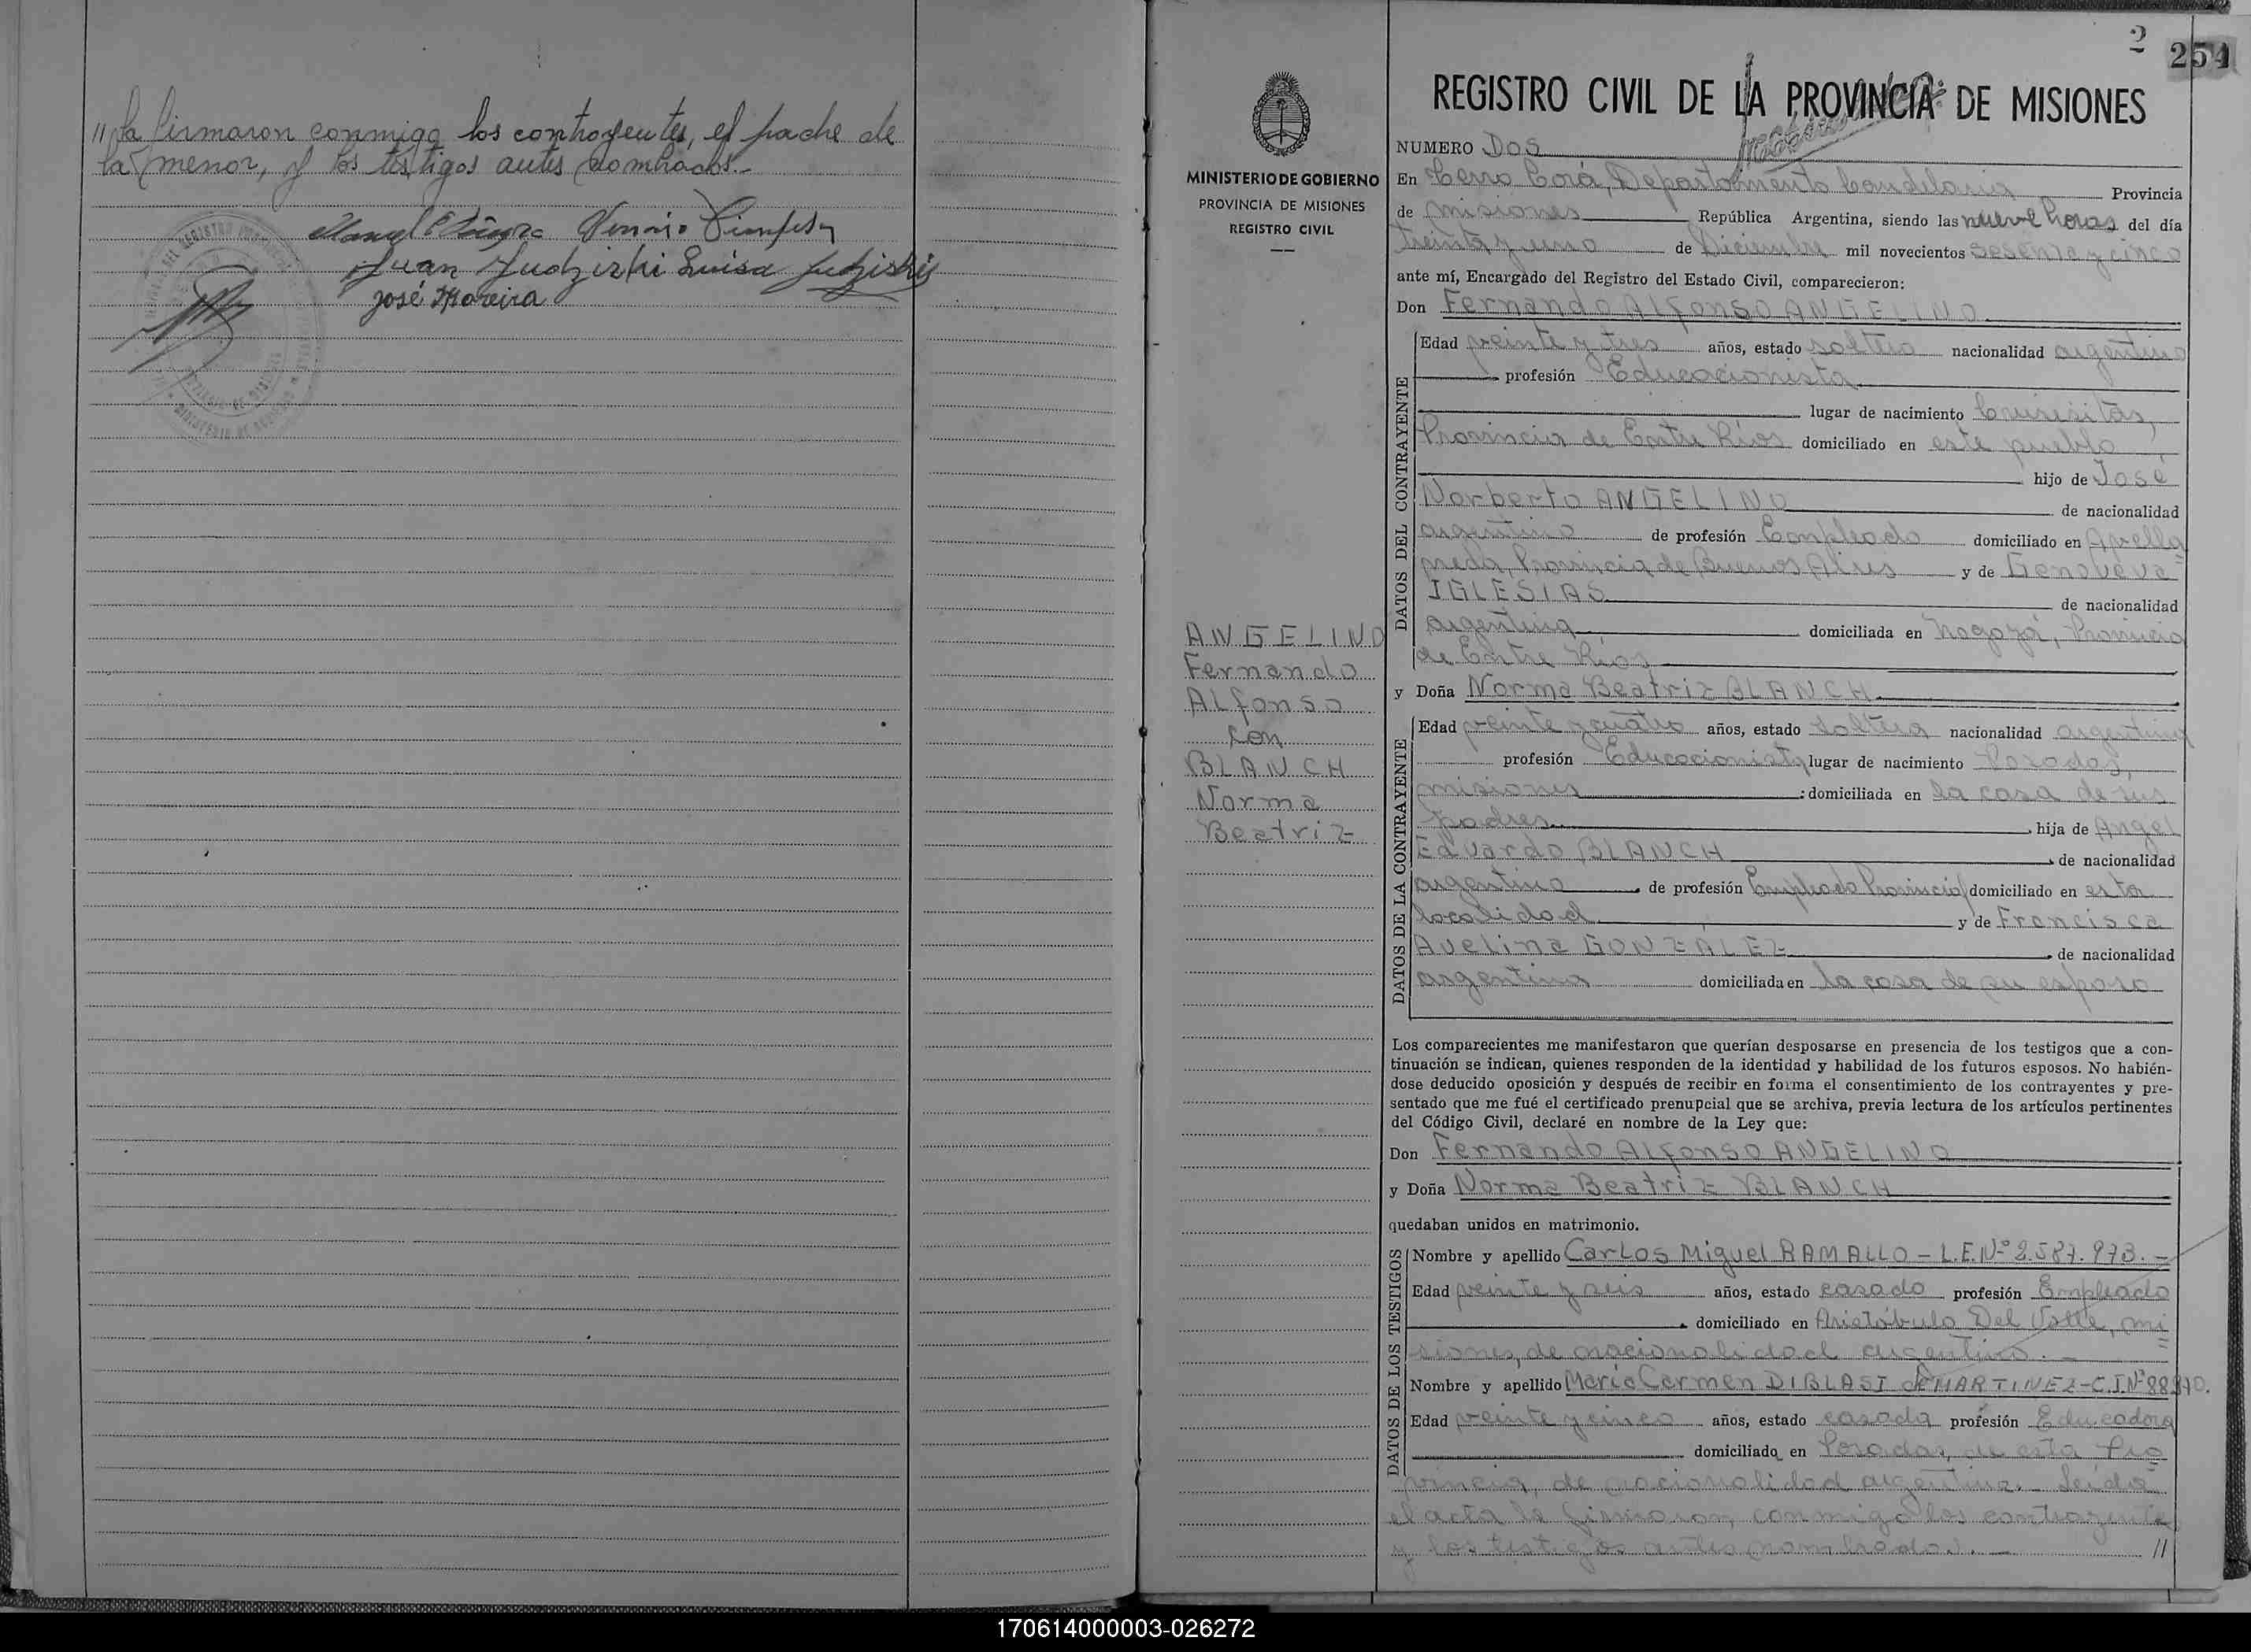 // la firmaron conmigo los contrayentes, el padre de
la menor, y los testigos antes nombrados.-
Juan Judzishi Luisa Judziskis
José Moreira
2
254
REGISTRO CIVIL DE LA PROVINCIA DE MISIONES
MINISTERIO DE GOBIERNO
PROVINCIA DE MISIONES
REGISTRO CIVIL
ANGELINO
Fernando
Alfonso
con
BLANCH
Norma
Beatriz
NUMERO Dos
En Cerro Corá, Departamento Candelaria Provincia
de Misiones República Argentina, siendo las nueve horas del día
treinta y uno de Diciembre mil novecientos sesenta y cinco
ante mí, Encargado del Registro del Estado Civil, comparecieron:
Don Fernando Alfonso ANGELINO.
DATOS DEL CONTRAYENTE
Edad veinte y tres años, estado soltero nacionalidad argentino
profesión Educacionista
lugar de nacimiento
Provincia de Entre Ríos domiciliado en este pueblo
hijo de José
Norberto ANGELINO de nacionalidad
argentino de profesión Empleado domiciliado en Avella=
neda, Provincia de Buenos Aires y de Genoveva
IGLESIAS de nacionalidad
argentina domiciliada en Nogoyá, Provincia
de Entre Ríos
y Doña Norma Beatriz BLANCH.
DATOS DE LA CONTRAYENTE
Edad veinte y cuatro años, estado soltera nacionalidad argentina
profesión Educacionista, lugar de nacimiento Posadas,
Misiones domiciliada en la casa de sus
padres. hija de Angel
Eduardo BLANCH de nacionalidad
argentino de profesión Empleado Provincial domiciliado en esta
localidad y de Francisca
Avelina GONZALEZ de nacionalidad
argentina domiciliada en la casa de su esposo
Los comparecientes me manifestaron que querían desposarse en presencia de los testigos que a con-
tinuación se indican, quienes responden de la identidad y habilidad de los futuros esposos. No habién-
dose deducido oposición y después de recibir en forma el consentimiento de los contrayentes y pre-
sentado que me fué el certificado prenupcial que se archiva, previa lectura de los artículos pertinentes
del Código Civil, declaré en nombre de la Ley que:
Don Fernando Alfonso ANGELINO
y Doña Norma Beatriz BLANCH
quedaban unidos en matrimonio.
DATOS DE LOS TESTIGOS
Nombre y apellido Carlos Miguel RAMALLO - L.E.Nº 2.587.973.-
Edad veinte y seis años, estado casado profesión Empleado
domiciliado en Aristóbulo Del Valle, Mi=
siones, de nacionalidad argentino.-
Nombre y apellido María Carmen DIBLASI de MARTINEZ-C.I.Nº
Edad veinte y cinco años, estado casada profesión Educadora
domiciliada en Posadas, de esta Pro=
vincia, de nacionalidad argentina.- Leída
el acta la firmaron, conmigo los contrayentes
y los testigos antes nombrados.- //
170614000003-026272